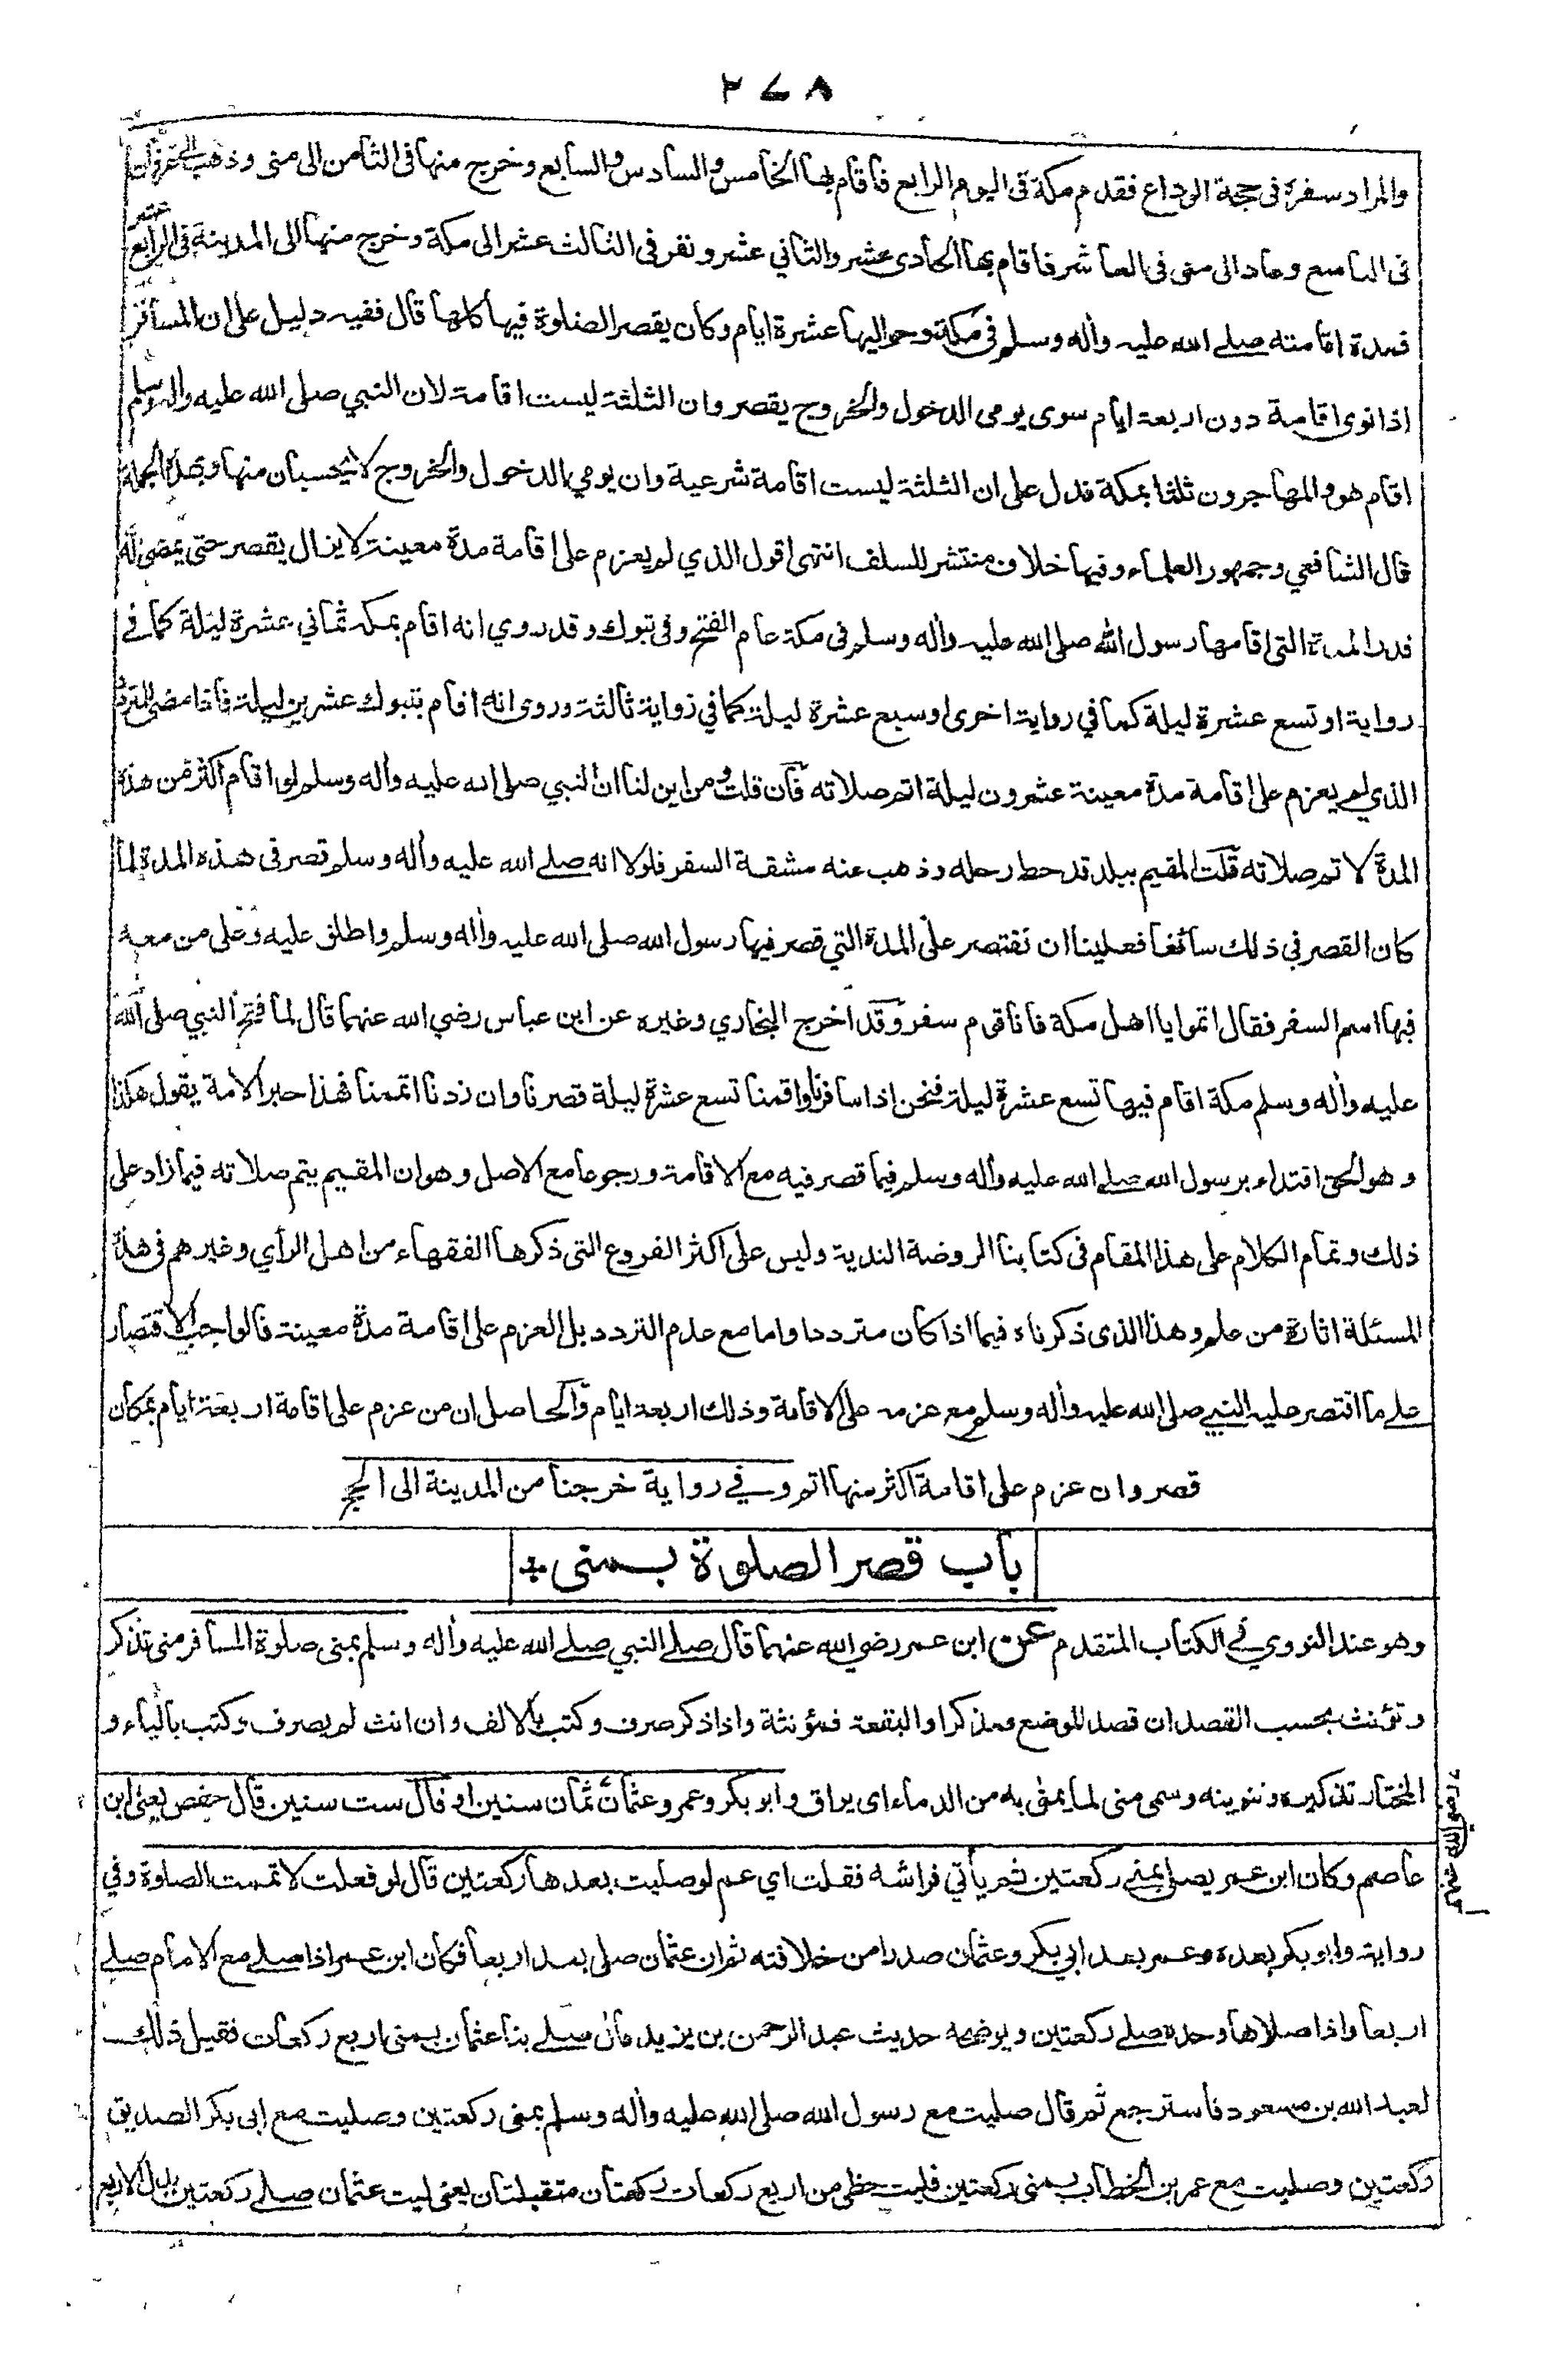 ٢٧٨
والمراد سفره في حجة الوداع فقدم مكة في اليوم الرابع فأقام بها الخامس والسادس والسابع وخرج منها في الثامن الى منى وذهب الى عرفات
في التاسع وعاد الى منى في العاشر فاقام بها الحادى عشر والثاني عشر ونفر في الثالث عشر الى مكة وخرج منها الى المدينة في الرابع عشر
فمدة اقامته صلى الله عليه وأله وسلم في مكة وحواليها عشرة ايام وكان يقصر الصلوة فيها كلها قال ففيه دليل على ان المسافر
اذا نوى اقامة دون اربعة ايام سوى يومي الدخول والخروج يقصر وان الثلثة ليست اقامة لان النبي صلى الله عليه واله وسلم
اقام هو والمهاجرون ثلثا بمكة فدل على ان الثلثة ليست اقامة شرعية وان يومي الدخول والخروج لا يحسبان منها وبهذه الجملة
قال الشافعي وجمهور العلماء وفيها خلاف منتشر للسلف انتهى اقول الذي لم يعزم على اقامة مدة معينة لا يزال يقصر حتى يمضي له
قدر المدة التي اقامها رسول الله صلى الله عليه واله وسلم في مكة عام الفتح وفي تبوك وقد روي انه اقام بمكة ثماني عشرة ليلة كما في
رواية او تسع عشرة ليلة كما في رواية اخرى او سبع عشرة ليلة كما في رواية ثالثة وروى انه اقام بتبوك عشرين ليلة فاذا مضى للمتردد
الذي لم يعزم على اقامة مدة معينة عشرون ليلة اتم صلاته فان قلت ومن اين لنا ان النبي صلى الله عليه وأله وسلم لو اقام اكثر من هذه
المدة لاتم صلاته قلت المقيم ببلد قد حط رحله وذهب عنه مشقة السفر فلولا انه صلى الله عليه وأله وسلم قصر في هذه المدة لما
كان القصر في ذلك سائغا فعلينا ان نقتصر على المدة التي قصر فيها رسول الله صلى الله عليه واله وسلم واطلق عليه وعلى من معه
فيها اسم السفر فقال اتموا يا اهل مكة فانا قوم سفر وقد اخرج البخاري وغيره عن ابن عباس رضي الله عنهما قال لما فتح النبي صلى الله
عليه وأله وسلم مكة اقام فيها تسع عشرة ليلة فنحن اذا سافرنا واقمنا تسع عشرة ليلة قصرنا وان زدنا اتممنا فهذا حبر الامة يقول هكذا
وهو الحق اقتداء برسول الله صلى الله عليه وأله وسلم فيما قصر فيه مع الاقامة ورجوعا مع الاصل وهو ان المقيم يتم صلاته فيما زاد على
ذلك وتمام الكلام على هذا المقام في كتابنا الروضة الندية وليس على اكثر الفروع التي ذكرها الفقهاء من اهل الرأي وغيرهم في هذه
المسئلة اثارة من علم وهذا الذى ذكرناه فيما اذا كان مترددا واما مع عدم التردد بل العزم على اقامة مدة معينة فالواجب الاقتصار
على ما اقتصر عليه النبي صلى الله عليه وأله وسلم مع عزمه على الاقامة وذلك اربعة ايام والحاصل ان من عزم على اقامة اربعة ايام بمكان
قصر وان عزم على اقامة اكثر منها اتم وفي رواية خرجنا من المدينة الى الحج
باب قصر الصلوة بمنى
وهو عند النووي في الكتاب المتقدم عن ابن عمر رضي الله عنهما قال صلى النبي صلى الله عليه وأله وسلم بمنى صلوة المسافر منى تذكر
وتؤنث بحسب القصد ان قصد الموضع فمذكر او البقعة فمؤنثة واذا ذكر صرف وكتب بالالف وان انث لم يصرف وكتب بالياء و
المختار تذكيره وتنوينه وسمى منى لما يمنى به من الدماء اى يراق وابو بكر وعمر وعثمان ثمان سنين او قال ست سنين قال حفص يعني ابن
عاصم وكان ابن عمر يصلي بمنى ركعتين ثم يأتي فراشه فقلت اي عم لو صليت بعدها ركعتين قال لو فعلت لاتممت الصلوة وفي
رواية وابو بكر بعده وعمر بعد ابي بكر وعثمان صدرا من خلافته ثم ان عثمان صلى بعد اربعا فكان ابن عمر اذا صلى مع الامام صلى
اربعا واذا صلاها وحده صلى ركعتين ويوضحه حديث عبد الرحمن بن يزيد قال صلى بنا عثمان بمنى اربع ركعات فقيل ذلك
لعبد الله بن مسعود فاسترجع ثم قال صليت مع رسول الله صلى الله عليه وأله وسلم بمنى ركعتين وصليت مع ابي بكر الصديق
ركعتين وصليت مع عمر بن الخطاب بمنى ركعتين فليت حظي من اربع ركعات ركعتان متقبلتان يعني ليت عثمان صلى ركعتين بدل الاربع